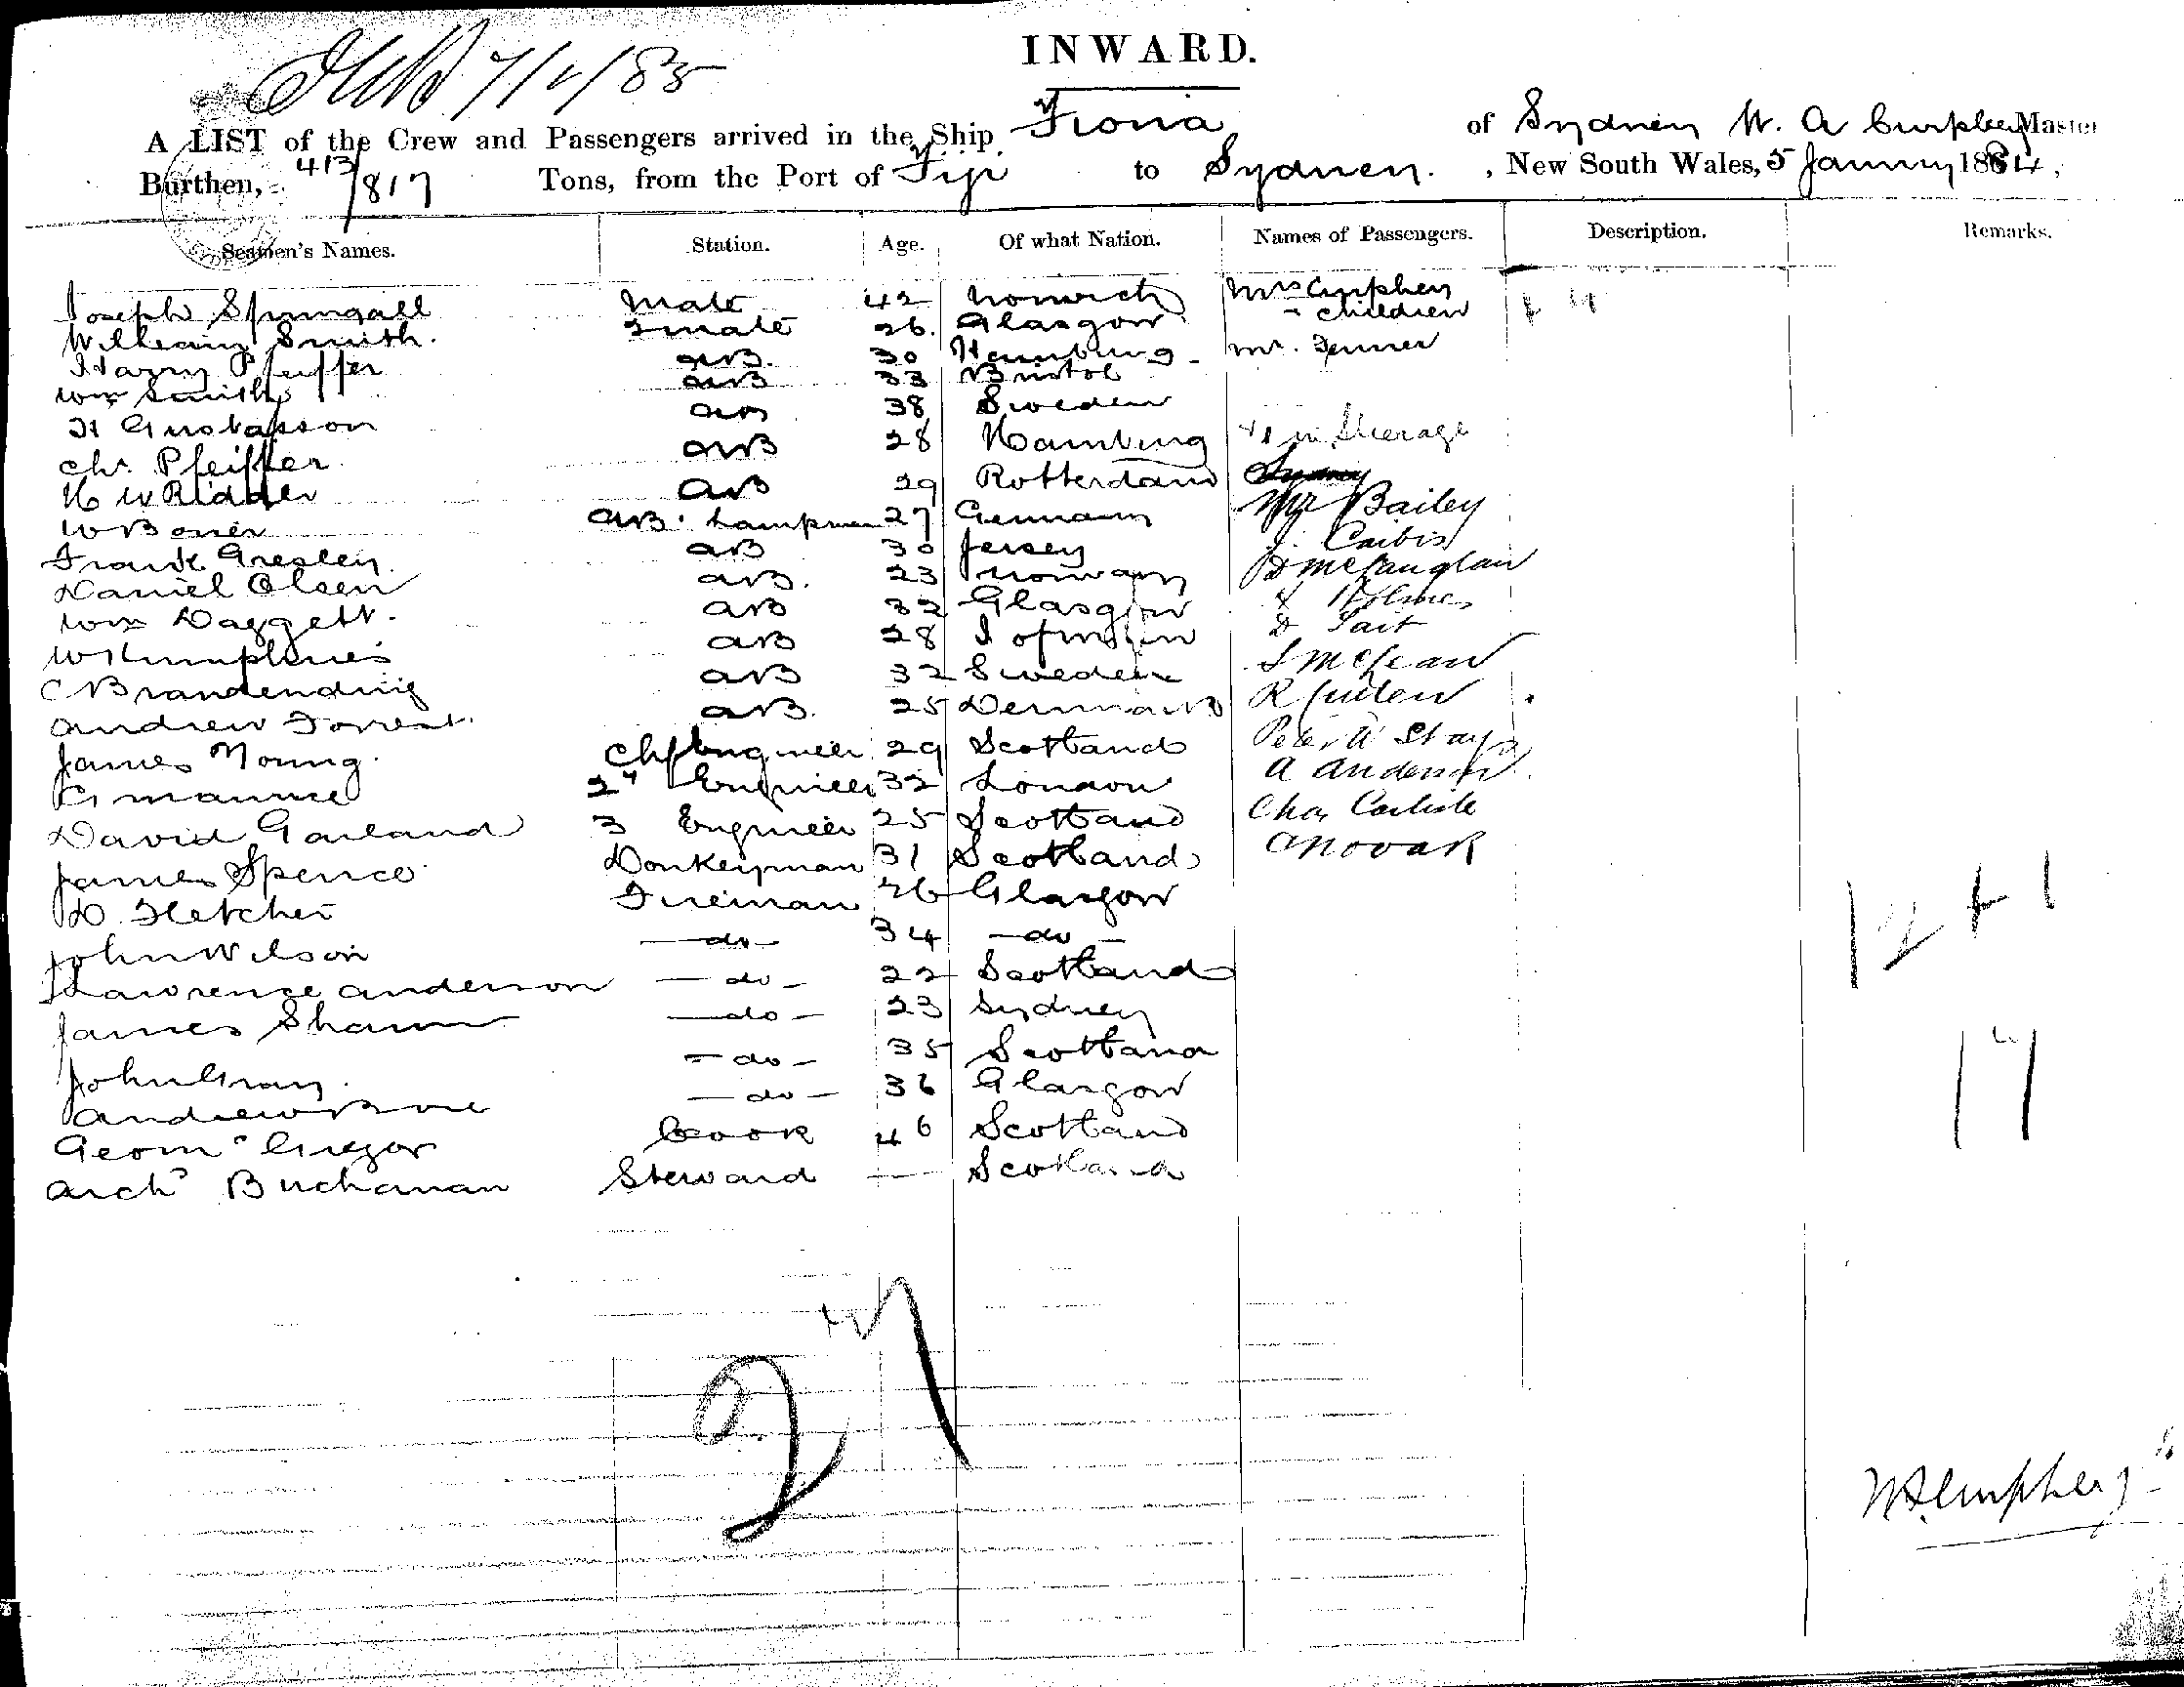 7/1/85
INWARD.
A LIST of the Crew and Passengers arrived in the Ship Fiona of Sydney W. A Curphey Master
Burthen, 413/817 Tons, from the Port of Fiji to Sydney. , New South Wales, 5 January 1884,
Seamen's Names. Station. Age. Of what Nation. Names of Passengers. Description. Remarks.
Joseph Springall Mate 42 Norwich Mrs Curphey
William Smith. 2 mate 26. Glasgow - children
Harry Pfeiffer AB. 30 Hamburg - Mr. Fenner
Wm Smith AB 33 Bristol
H Gustafson AB 38 Sweden
Chr. Pfeiffer AB 28 Hamburg in Steerage
H W Ridder AB 29 Rotterdam
W Boner AB. Lampman 27 Germany Mr Bailey
Frank Gresley. AB 30 Jersey J. Caibis
Daniel Olsen AB. 23 Norway D McLauglan
Wm Daggett. AB 32 Glasgow Holmes
W Humphries AB 28 I of man D Tait
C Brandending AB 32 Sweden S McLean
Andrew Forrest. AB. 25 Denmark R
James Young. Chf Engineer 29 Scotland Peter
G Maurice 2d Engineer 32 London A Anderson
David Garland 3 Engineer 25 Scotland Chas Carlisle
James Spence Donkeyman 31 Scotland A Novak
D. Fletcher Fireman 26 Glasgow
John Wilson - do - 34 - do -
Lawrence Anderson - do - 22 Scotland
James Shaw - do - 23 Sydney
John Gray. - do - 35 Scotland
Andrew - do - 36 Glasgow
Geo Mc Gregor Cook 46 Scotland
Archd Buchanan Steward — Scotland
12 + 1
17
27
W A Curphey